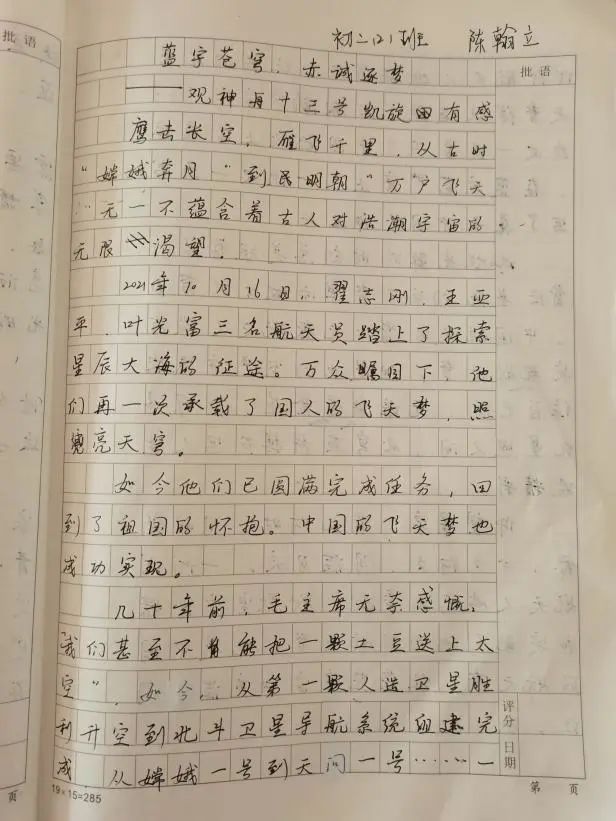 批语
初二(2)班 陈翰立
蓝宇苍穹，赤诚逐梦
批语
——观神舟十三号凯旋回有感
鹰击长空，雁飞千里，从古时
“嫦娥奔月”到民明朝“万户飞天
”无一不蕴含着古人对浩潮宇宙的
无限渴望.
2021年10月16日，翟志刚.王亚
平.叶光富三名航天员踏上了探索
星辰大海的征途。万众瞩目下，他
们再一次承载了国人的飞天梦，照
亮天穹。
如今他们已圆满完成任务，回
到了祖国的怀抱。中国的飞天梦也
成功实现。
几十年前，毛主席无奈感慨，
“我们甚至不能把一颗土豆送上太
空”，如今，从第一颗人造卫星胜
利升空到北斗卫星导航系统组建完
成 从嫦娥一号到天问一号……一
评分
日期
页
19×15=285
第 页